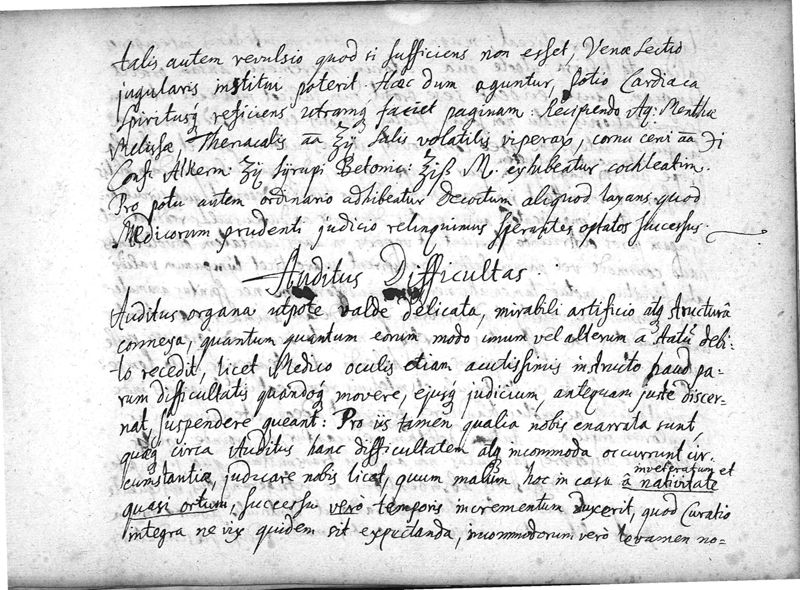 talis autem revulsio quod si sufficiens non esset, Venæ Sectio
jugularis institui poterit. Hæc dum aguntur, potio Cardiaca
Spiritusq́ reficiens utramq́ faciet paginam. Recipiendo Aq: Menthæ
Melissæ, Theriacalis āā ℥ij Salis volatilis viperar, cornu cervi āā ℈i
Conf: Alkerm: ʒij Syrupi Betonic: ℥iß M. exhibeatur cochleatim.
Pro potu autem ordinario adhibeatur decoctum aliquod laxans quod
Medicorum prudenti judicio relinquimus sperantes optatos successus.
Auditus Difficultas
Auditus organa utpote valde delicata, mirabili artificio atq́ structurâ
connexa, quantum quantum eorum modo unum vel alterum â statu debi-
to recedit, licet Medico oculis etiam acutissimis instructo haud pa-
rum difficultatis quandoq́ movere, ejusq́ judicium, antequam juste discer-
nat, suspendere queant: Pro iis tamen qualia nobis enarrata sunt,
quæq́ circa Auditus hanc difficultatem atq́ incommoda occurrunt cir-
cumstantiæ, judicare nobis licet, quum malum hoc in casu â nativitate
inveteratum et
quasi ortum, successu verò temporis incrementum duxerit, quod Curatio
integra ne vix quidem sit expectanda, incommodorum verò levamen no-